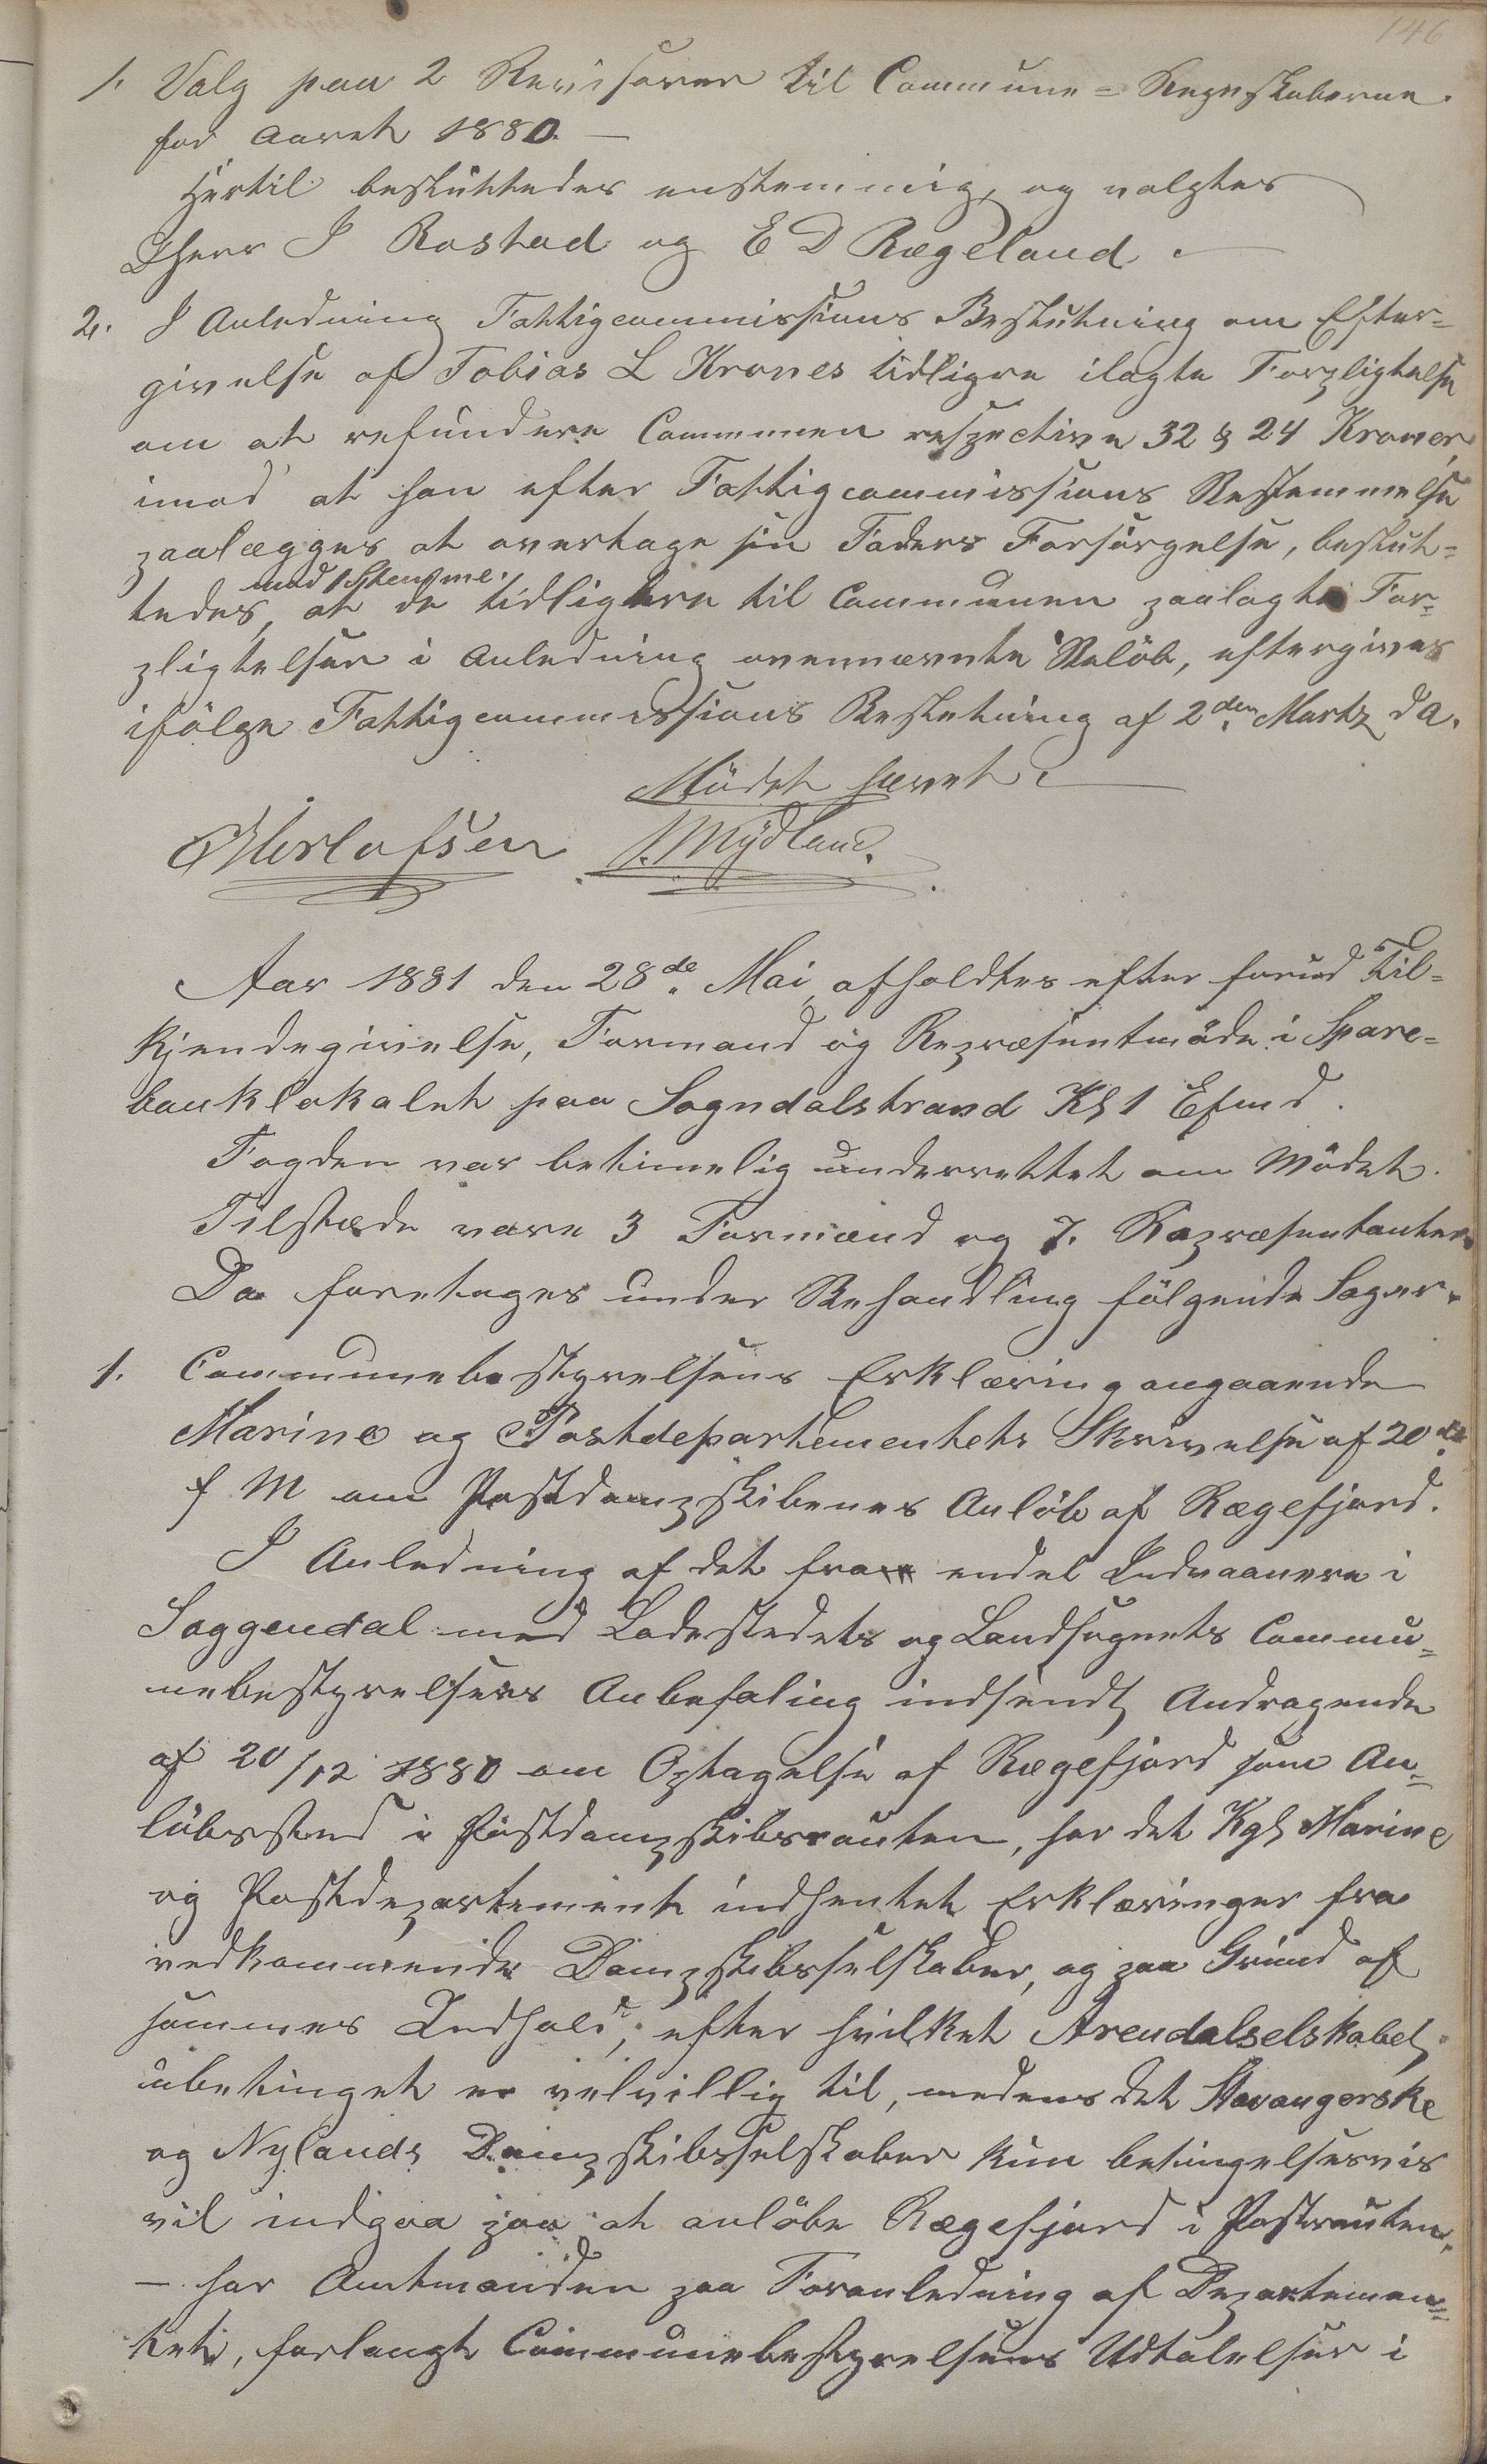 146
1. Valg paa 2 Revisorer til Commune=Regnskaberne
for Aaret 1880. —
Hertil besluttedes enstemmig, og valgtes
Dhrr J Rostad og E D Rægeland. —
2. I Anledning Fattigcommissions Beslutning om Efter=
givelse af Tobias L Hrones tidligere ilagte Forpligtelse
om at refundere Communen respective 32 & 24 Kroner,
imod at han efter Fattigcommissions Bestemmelse
paalægges at overtage sin Faders Forsørgelse, beslut=
med 1 Stemme.
tedes, at de tidligere til Communen paalagte For=
pligtelser i Anledning ovennævnte Beløb, eftergives
ifölge Fattigcommissions Beslutning af 2den Martz d A.
Mödet hævet.
Mydland.
Aar 1881 den 28de Mai, afholdtes efter forud Til=
kjendegivelse, Formand og Repræsentmöde i Spare=
banklokalet paa Sogndalstrand Kl 1 Efmd.
Fogden var betimelig underrettet om Mödet.
Tilstæde vare 3 Formænd og 7. Repræsentanter.
Da foretages under Behandling fölgende Sager.
1. Communebestyrelsens Erklæring angaaende
Marine og Postdepartementets Skrivelse af 20de
f M om Postdampskibenes Anlöb af Rægefjord.
I Anledning af det fra endel Indvaanere i
Soggendal med Ladestedets og Landsognets Commu=
nebestyrelsers Anbefaling indsendt Andragende
af 20/12 1880 om Optagelse af Rægefjord som An=
löbssted i Postdampskibsrouten, har det Kgl Marine
og Postdepartement indhentet Erklæringer fra
vedkommende Dampskibsselskaber, og paa Grund af
sammes Indhold, efter hvilket Arendalselskabet
ubetinget er velvillig til, medens det Stavangerske
og Nylands Dampskibsselskaber kun betingelsesvis
vil indgaa paa at anlöbe Rægefjord i Postrouten,
— har Amtmanden paa Foranledning af Departemen=
tet, forlangt Communebestyrelsens Udtalelser i